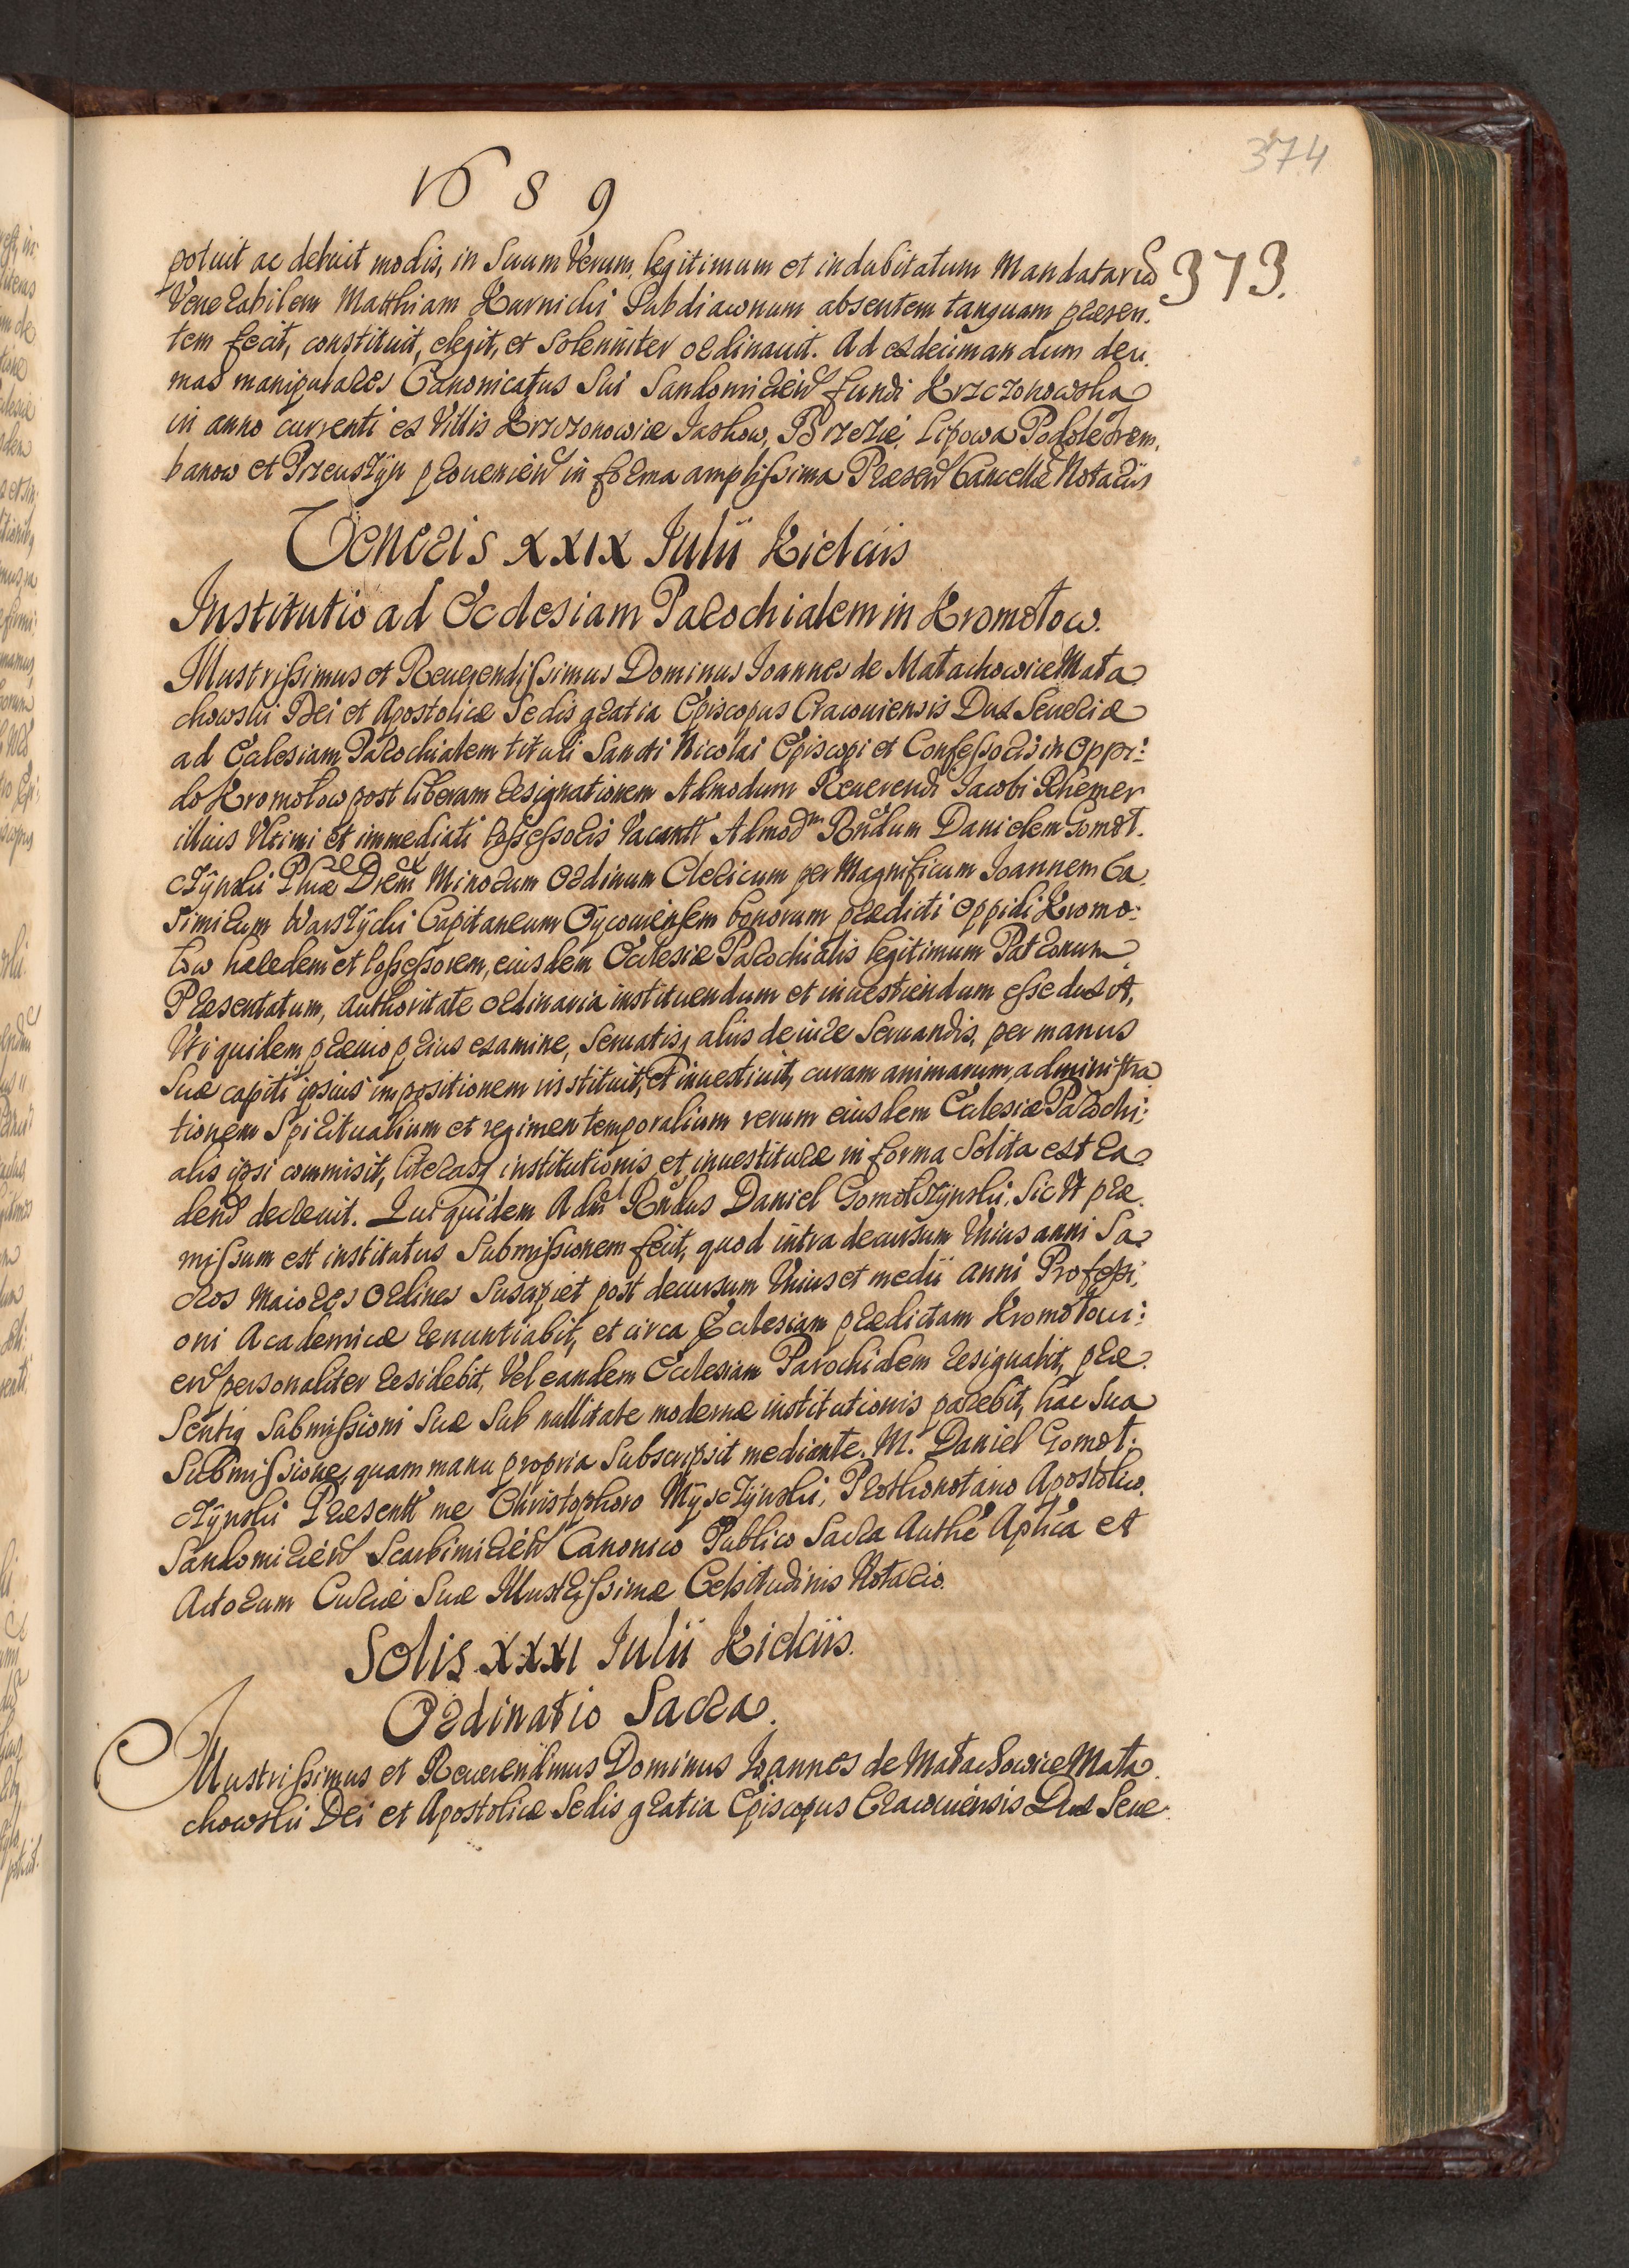 374
1689
373.
potuit ac debuit modis, in Suum Verum, legitimum et indubitatum Mandatariũ
Venerabilem Matthiam Kurnicki Subdiaconum absentem tanquam præsen.
tem fecit, constituit, elegit, et Solenniter ordinauit. Ad exdecimandum deci
mas manipulares Canonicatus Sui Sandomirien fundi Krzczonowska
in anno currenti ex Villis Krzczonowice Jaskow, Brzezie, Lipowa Podole
banow et Przeuszyn prouenien in forma amplissima Præsen Cancellæ Notarijs
Veneris XXIX Iulij Kielcijs
Institutio ad Ecclesiam Parochialem in Kromołow.
Illustrissimus et Reuerendissimus Dominus Joannes de Małachowice Mała
chowski Dei et Apostolicæ Sedis gratia Episcopus Cracouiensis Dux Seueriæ
ad Ecclesiam Parochialem tituli Sancti Nicolai Episcopi et Confessoris in Oppi:
do Kromołow post liberam resignationem Admodum Reuerendi Jacobi Rhemer
illius Vltimi et immediati Possessoris Vacantẽ Admodm Rndum Danielem Gomoł.
czÿnski Phiæ Drem Minorum Ordinum Clericum per Magnificum Joannem Ca.
simirum Warszÿcki Capitaneum Oÿcouiensem bonorum prædicti Oppidi Kromo:
łow hæredem et Possessorem, eiusdem Ecclesiæ Parochialis legitimum Patronum
Præsentatum, authoritate ordinaria instituendum et inuestiendum esse duxit,
Vti quidem præuio prius examine, Seruatisq aliis de iure Seruandis, per manus
Suæ capiti ipsius impositionem instituit, et inuestiuit, curam animarum, administra
tionem Spiritualium et regimen temporalium rerum eiusdem Ecclesiæ Parochi:
alis ipsi commisit, literasq institutionis et inuestituræ in forma Solita extra
dend decreuit. Qui quidem Adm Rndus Daniel Gomołczÿnski, Sic Vt præ
missum est institutus Submissionem fecit, quod intra decursum Vnius anni Sa
cros Maiores Ordines Suscipiet post decursum Vnius et medii anni Professi:
oni Academicæ renuntiabit, et circa Ecclesiam prædictam Kromołoui:
en personaliter residebit, Vel eandem Ecclesiam Parochialem resignabit, præ
sentiq Submissioni Suæ Sub nullitate modernæ institutionis parebit, hac Sua
Submissione, quam manu propria Subscripsit mediante. M. Daniel Gomoł:
czÿnski Præsentẽ me Christophoro Mÿsczÿnski, Prothonotario Apostolico,
Sandomirien Scarbimirien Canonico Publico Sacra Authe Aplica et
Actorum Curiæ Suæ Illustrissimæ Celsitudinis Notario.
Solis XXXI Iulij Kielcijs.
Ordinatio Sacra.
Illustrissimus et Reuerendmus Dominus Joannes de Małachowice Mała
chowski Dei et Apostolicæ Sedis gratia Episcopus Cracouiensis Dux Seue